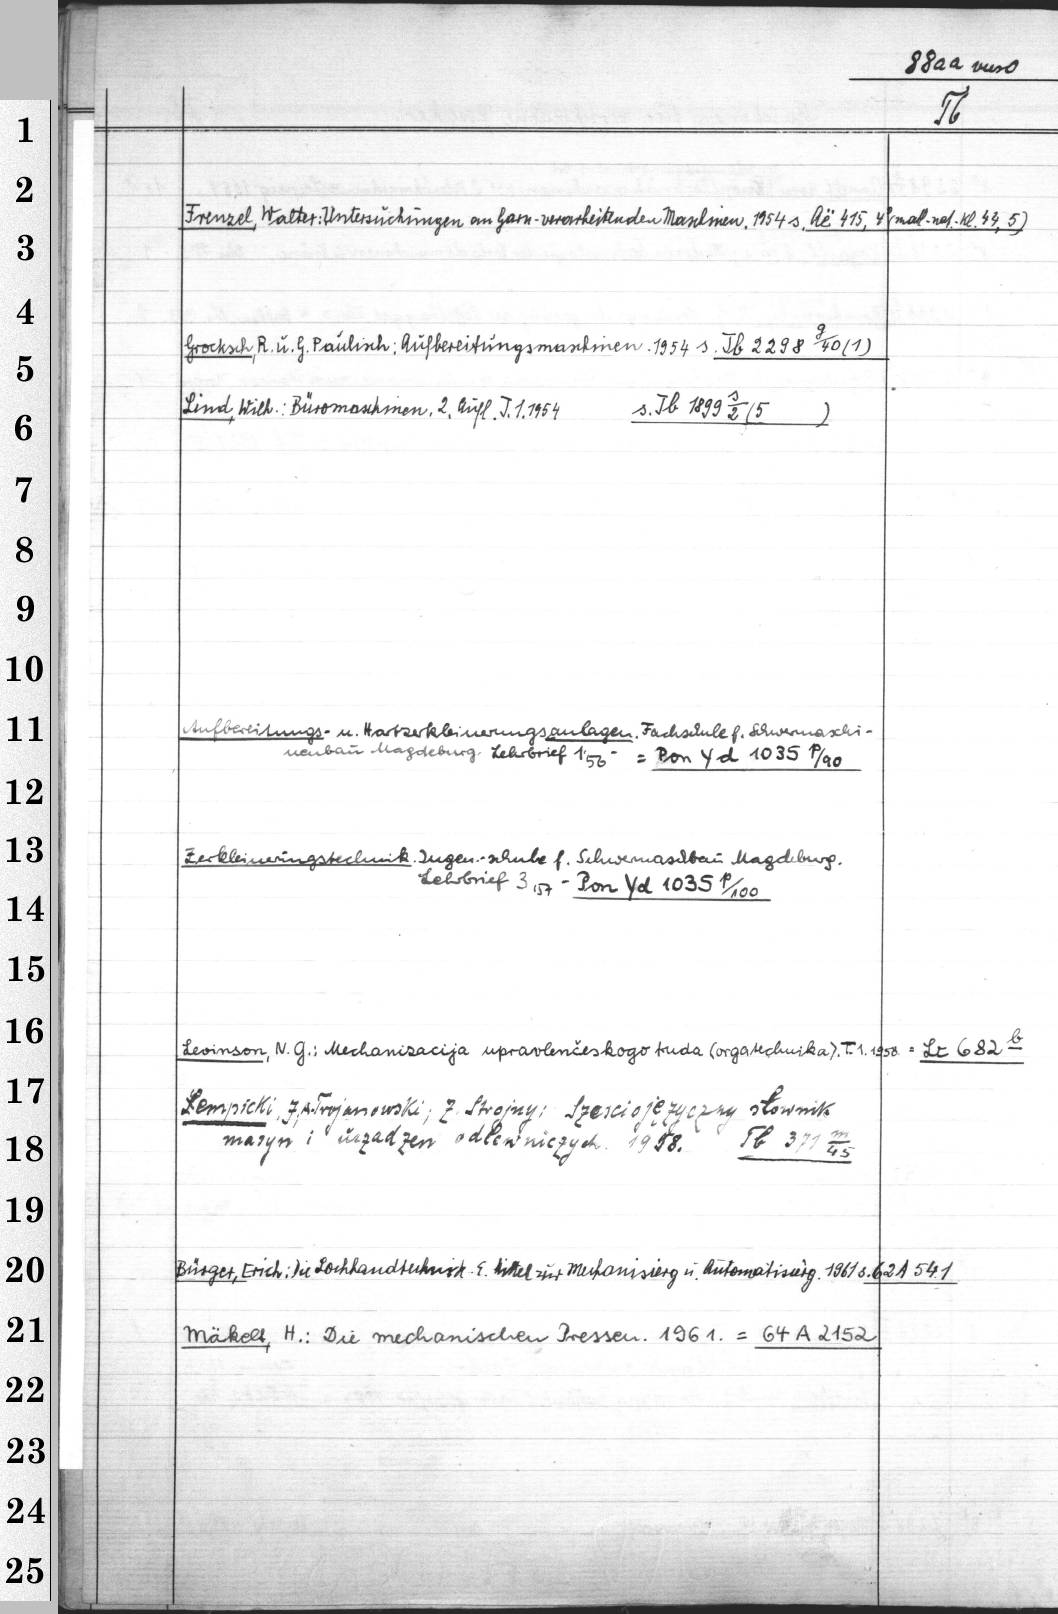 88aa verso
Tb
1
2
Frenzel, Walter: Untersuchungen an Garn-verarbeitenden Maschinen. 1954 s. Aë 415, 4° (mat.-nat.-Kl. 44, 5)
3
4
Grocksch, R. u. G. Paulisch: Aufbereitungsmaschinen. 1954 s. Tb 2298 g/40 (1)
5
Lind, Wilh.: Büromaschinen. 2. Aufl. T. 1. 1954 s. Tb 1899 s/2 (5 )
6
7
8
9
10
11
Aufbereitungs- u. Hartzerkleinerungsanlagen. Fachschule f. Schwermaschi-
nenbau Magdeburg. Lehrbrief 1/56 - = Pon Yd 1035 P/90
12
13
Zerkleinerungstechnik. Ingen.-schule f. Schwermaschbau Magdeburg.
Lehrbrief 3/57 - Pon Yd 1035 P/100
14
15
16
Levinson, N. G.: Mechanizacija upravlenčeskogo truda (orgatechnika). T. 1. 1958. = Lz 682 b
17
Lempicki, J, A. Trojanowski, Z. Strojny: Sześciojęzyczny słownik
18
masyn i urządzen odlewniczych. 1958. Tb 371 m/45
19
20
Bürger, Erich: Die Lochbandtechnik. E. Mittel zur Mechanisierg u. Automatisierg. 1961 s. 62 A 541
21
Mäkelt, H.: Die mechanischen Pressen. 1961. = 64 A 2152
22
23
24
25